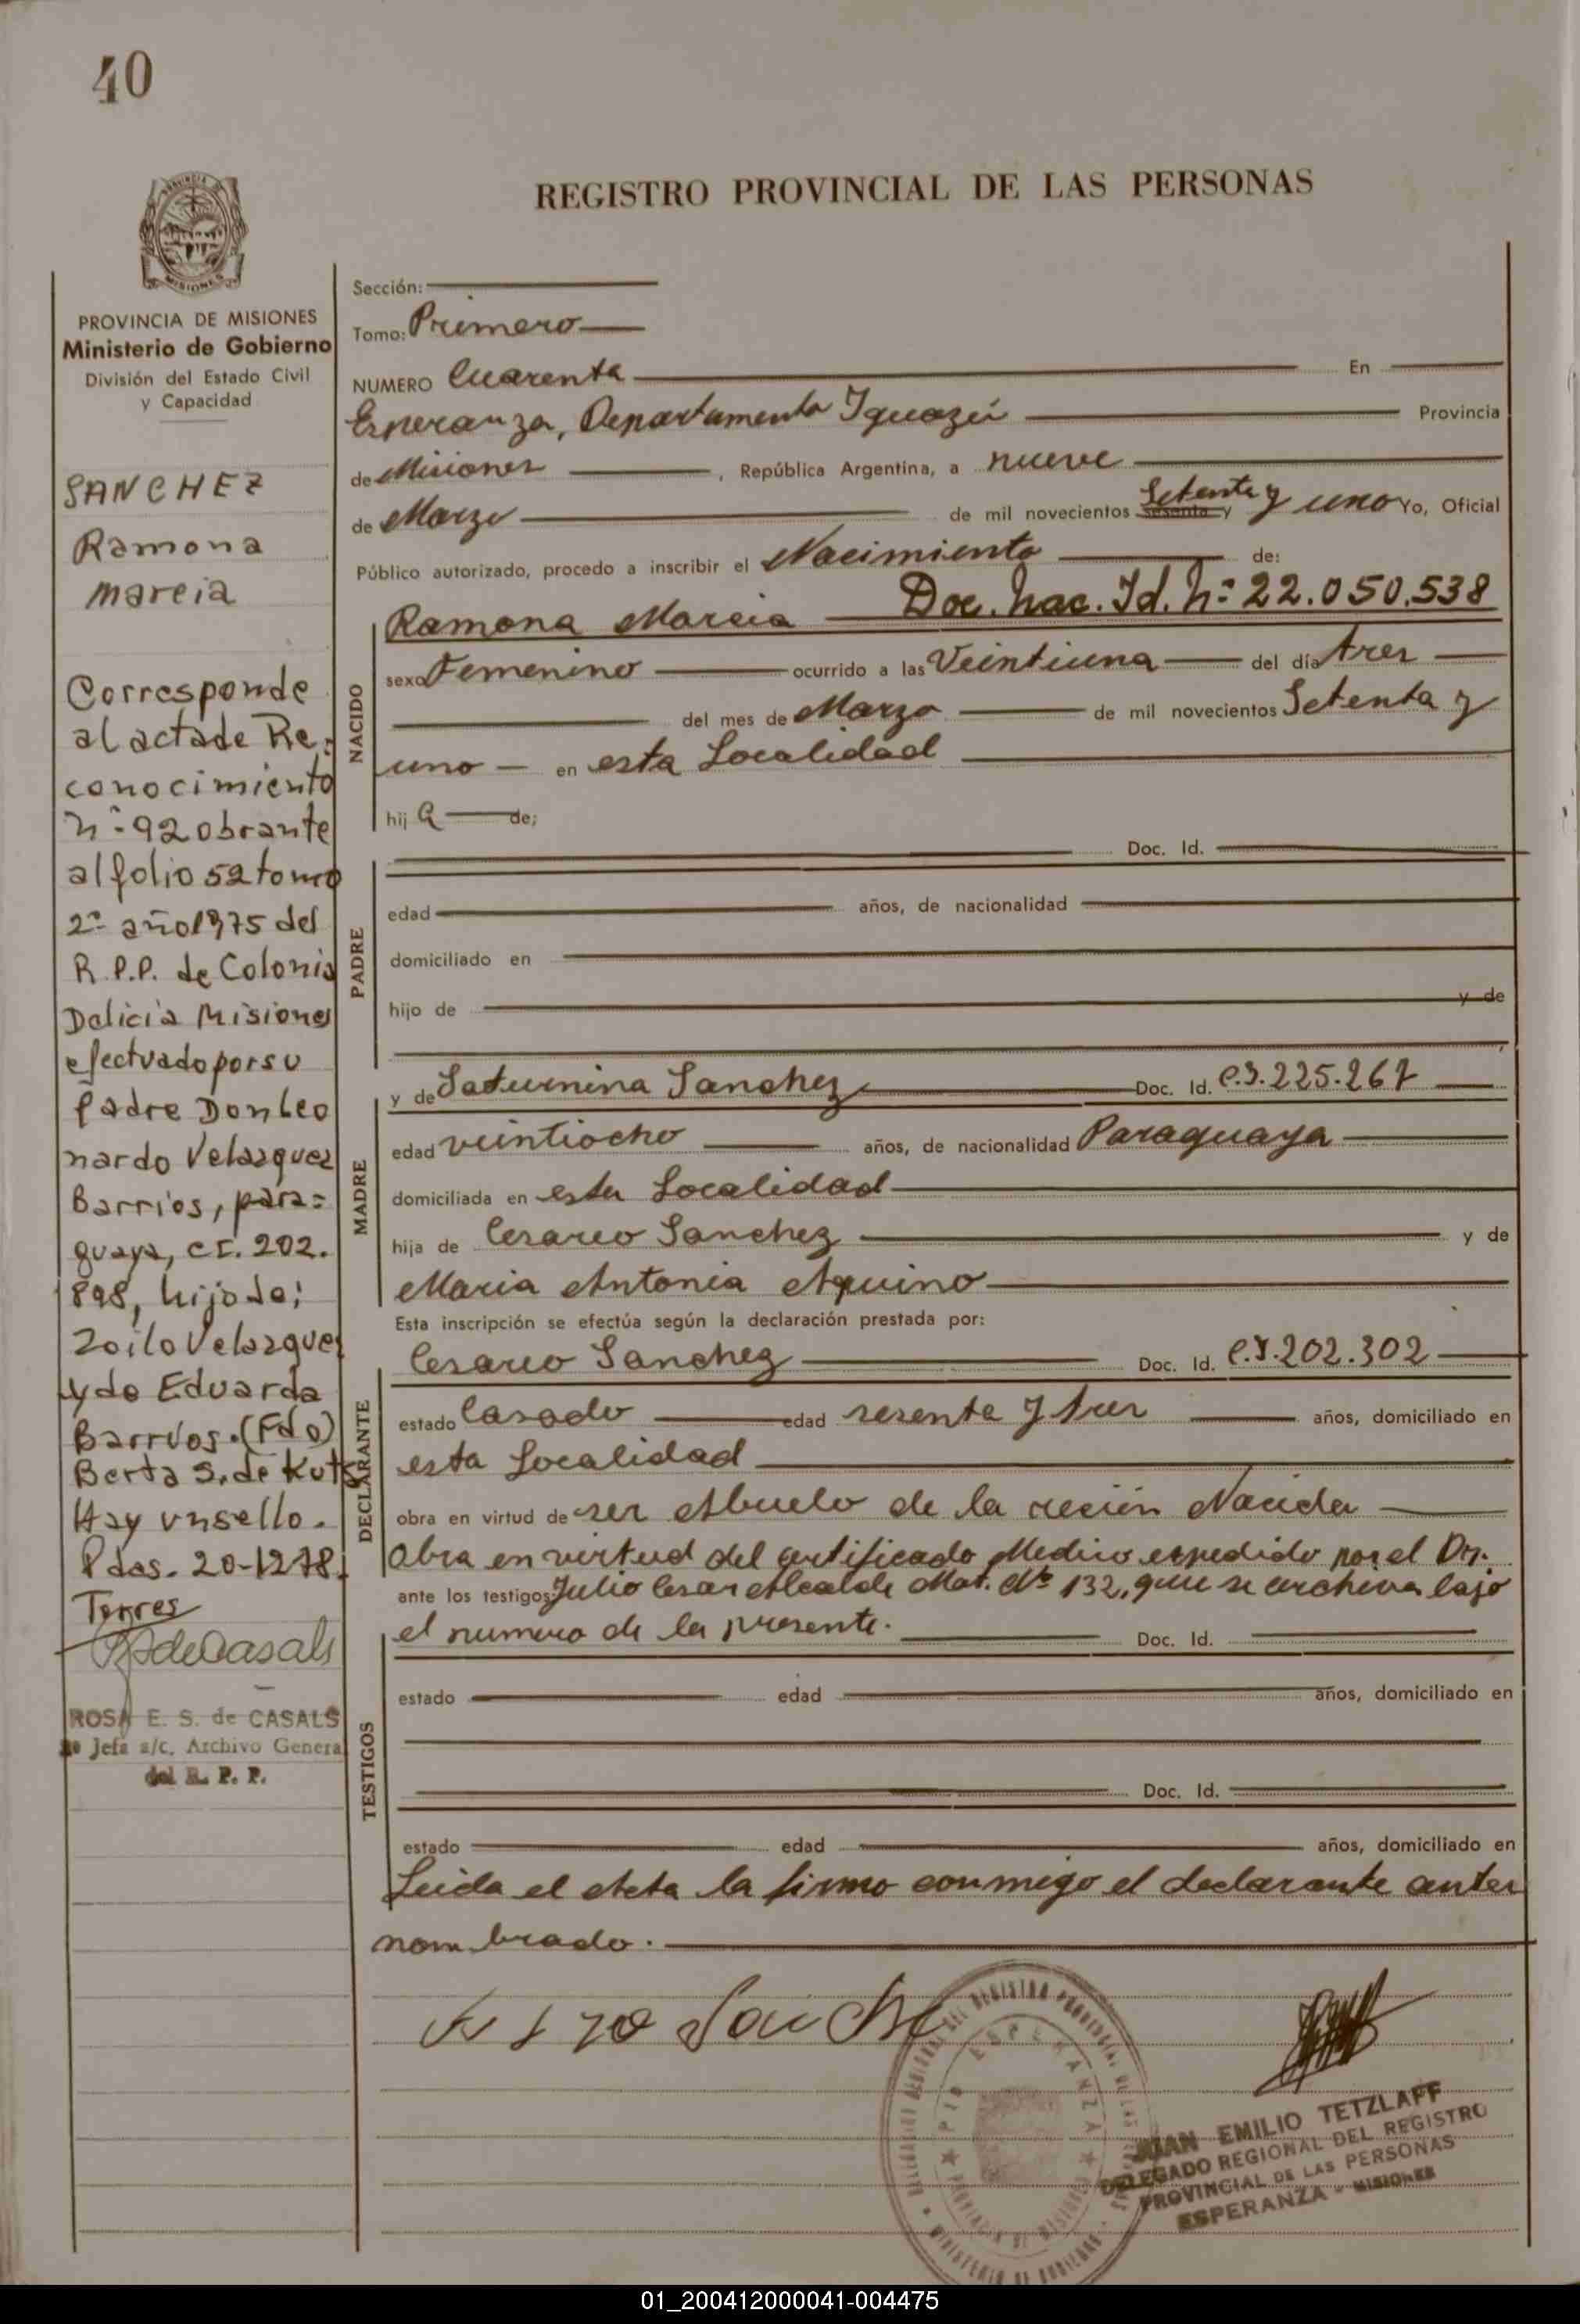 40
REGISTRO PROVINCIAL DE LAS PERSONAS
MISIONES
PROVINCIA DE MISIONES
Ministerio de Gobierno
División del Estado Civil
y Capacidad
SANCHEZ
Ramona
Marcia
Corresponde
al acta de Re=
conocimiento
nº 92 obrante
al folio 52 tomo
2º año 1975 del
R.P.P. de Colonia
Delicia Misiones
efectuado por su
Padre Don Leo
nardo Velazquez
Barrios, para=
guaya, CI. 202.
898, hijo de:
Zoilo Velazquez
y de Eduarda
Barrios. (Fdo)
Berta S. de Kutz
Hay un sello.
Pdas. 20-12-78.
Torres
ROSA E. S. de CASALS
Jefa a/c. Archivo General
del R. P. P.
Sección:
Tomo: Primero
NUMERO Cuarenta En
Esperanza, Departamento Iguazú Provincia
de Misiones, República Argentina, a nueve
de Marzo de mil novecientos sesenta y Setenta y uno Yo, Oficial
Público autorizado, procedo a inscribir el Nacimiento de:
Ramona Marcia Doc. Nac. Id. Nº 22.050.538
NACIDO
sexo Femenino ocurrido a las Veintiuna del día tres
del mes de Marzo de mil novecientos Setenta y
uno en esta Localidad
hij a de;
Doc. Id.
PADRE
edad años, de nacionalidad
domiciliado en
hijo de y de
y de Saturnina Sanchez Doc. Id. C.I. 225.267
MADRE
edad veintiocho años, de nacionalidad Paraguaya
domiciliada en esta Localidad
hija de Cesareo Sanchez y de
Maria Antonia Aquino
Esta inscripción se efectúa según la declaración prestada por:
Cesareo Sanchez Doc. Id. C.I. 202.302
DECLARANTE
estado Casado edad sesenta y tres años, domiciliado en
esta Localidad
obra en virtud de ser Abuelo de la recién Nacida
Obra en virtud del certificado Medico expedido por el Dr.
ante los testigos Julio Cesar Alcalde Mat. Nº 132, que se archiva bajo
el numero de la presente. Doc. Id.
TESTIGOS
estado edad años, domiciliado en
Doc. Id.
estado edad años, domiciliado en
Leida el Acta la firmo conmigo el declarante antes
nombrado.
ESPERANZA
JUAN EMILIO TETZLAFF
DELEGADO REGIONAL DEL REGISTRO
PROVINCIAL DE LAS PERSONAS
ESPERANZA - MISIONES
01_200412000041-004475